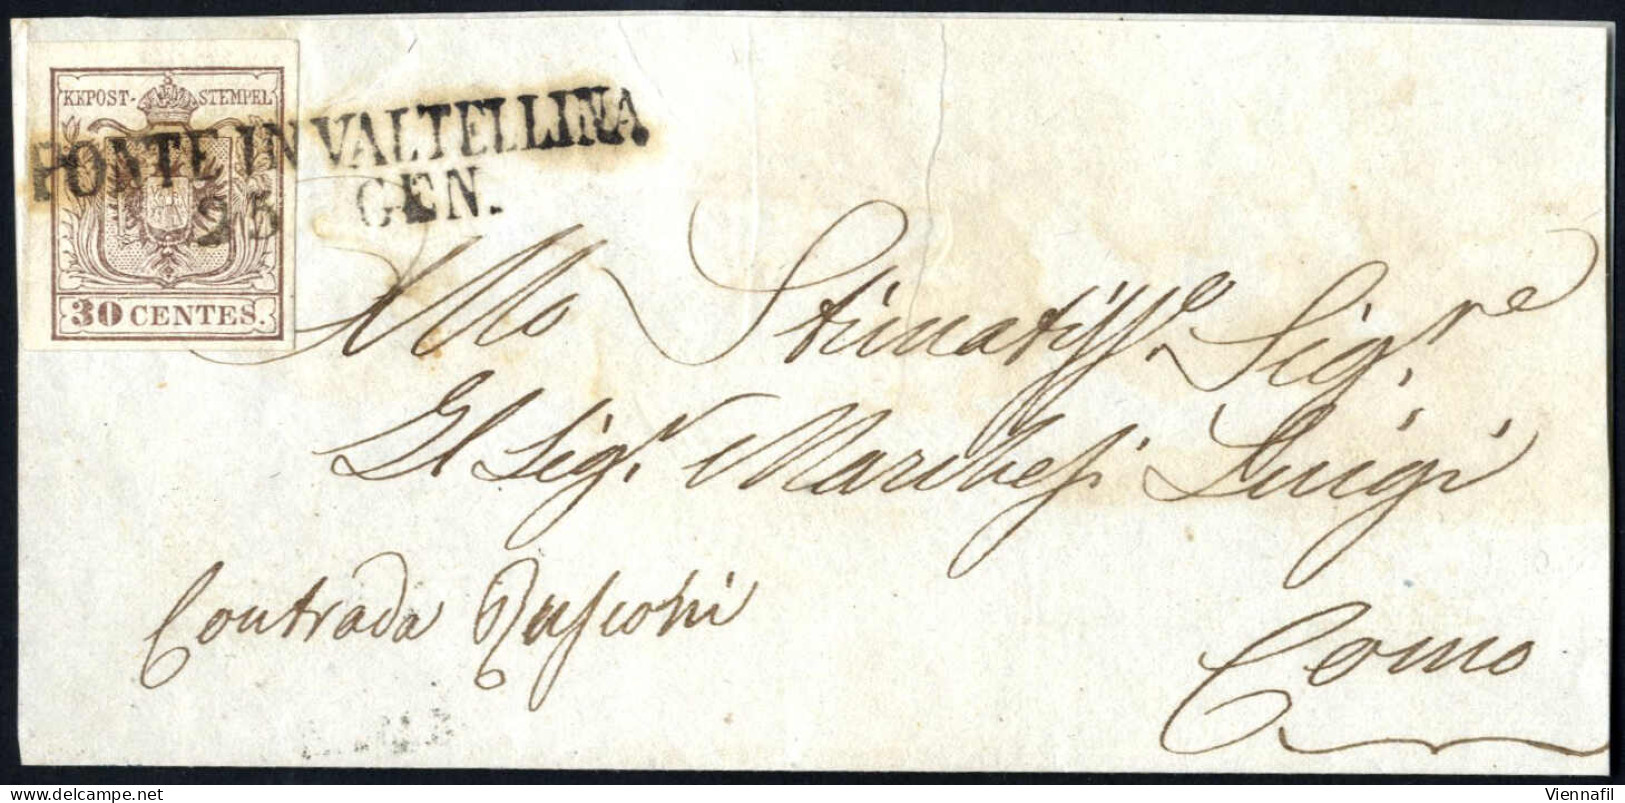 KKPOST-STEMPEL
PONTE IN VALTELLINA
25 GEN.
30 CENTES.
Allo Stimatiss.º Sig.re
Il Sig.r Marchesi Luigi
Contrada Rusconi
Como
delcampe.net
Viennafil